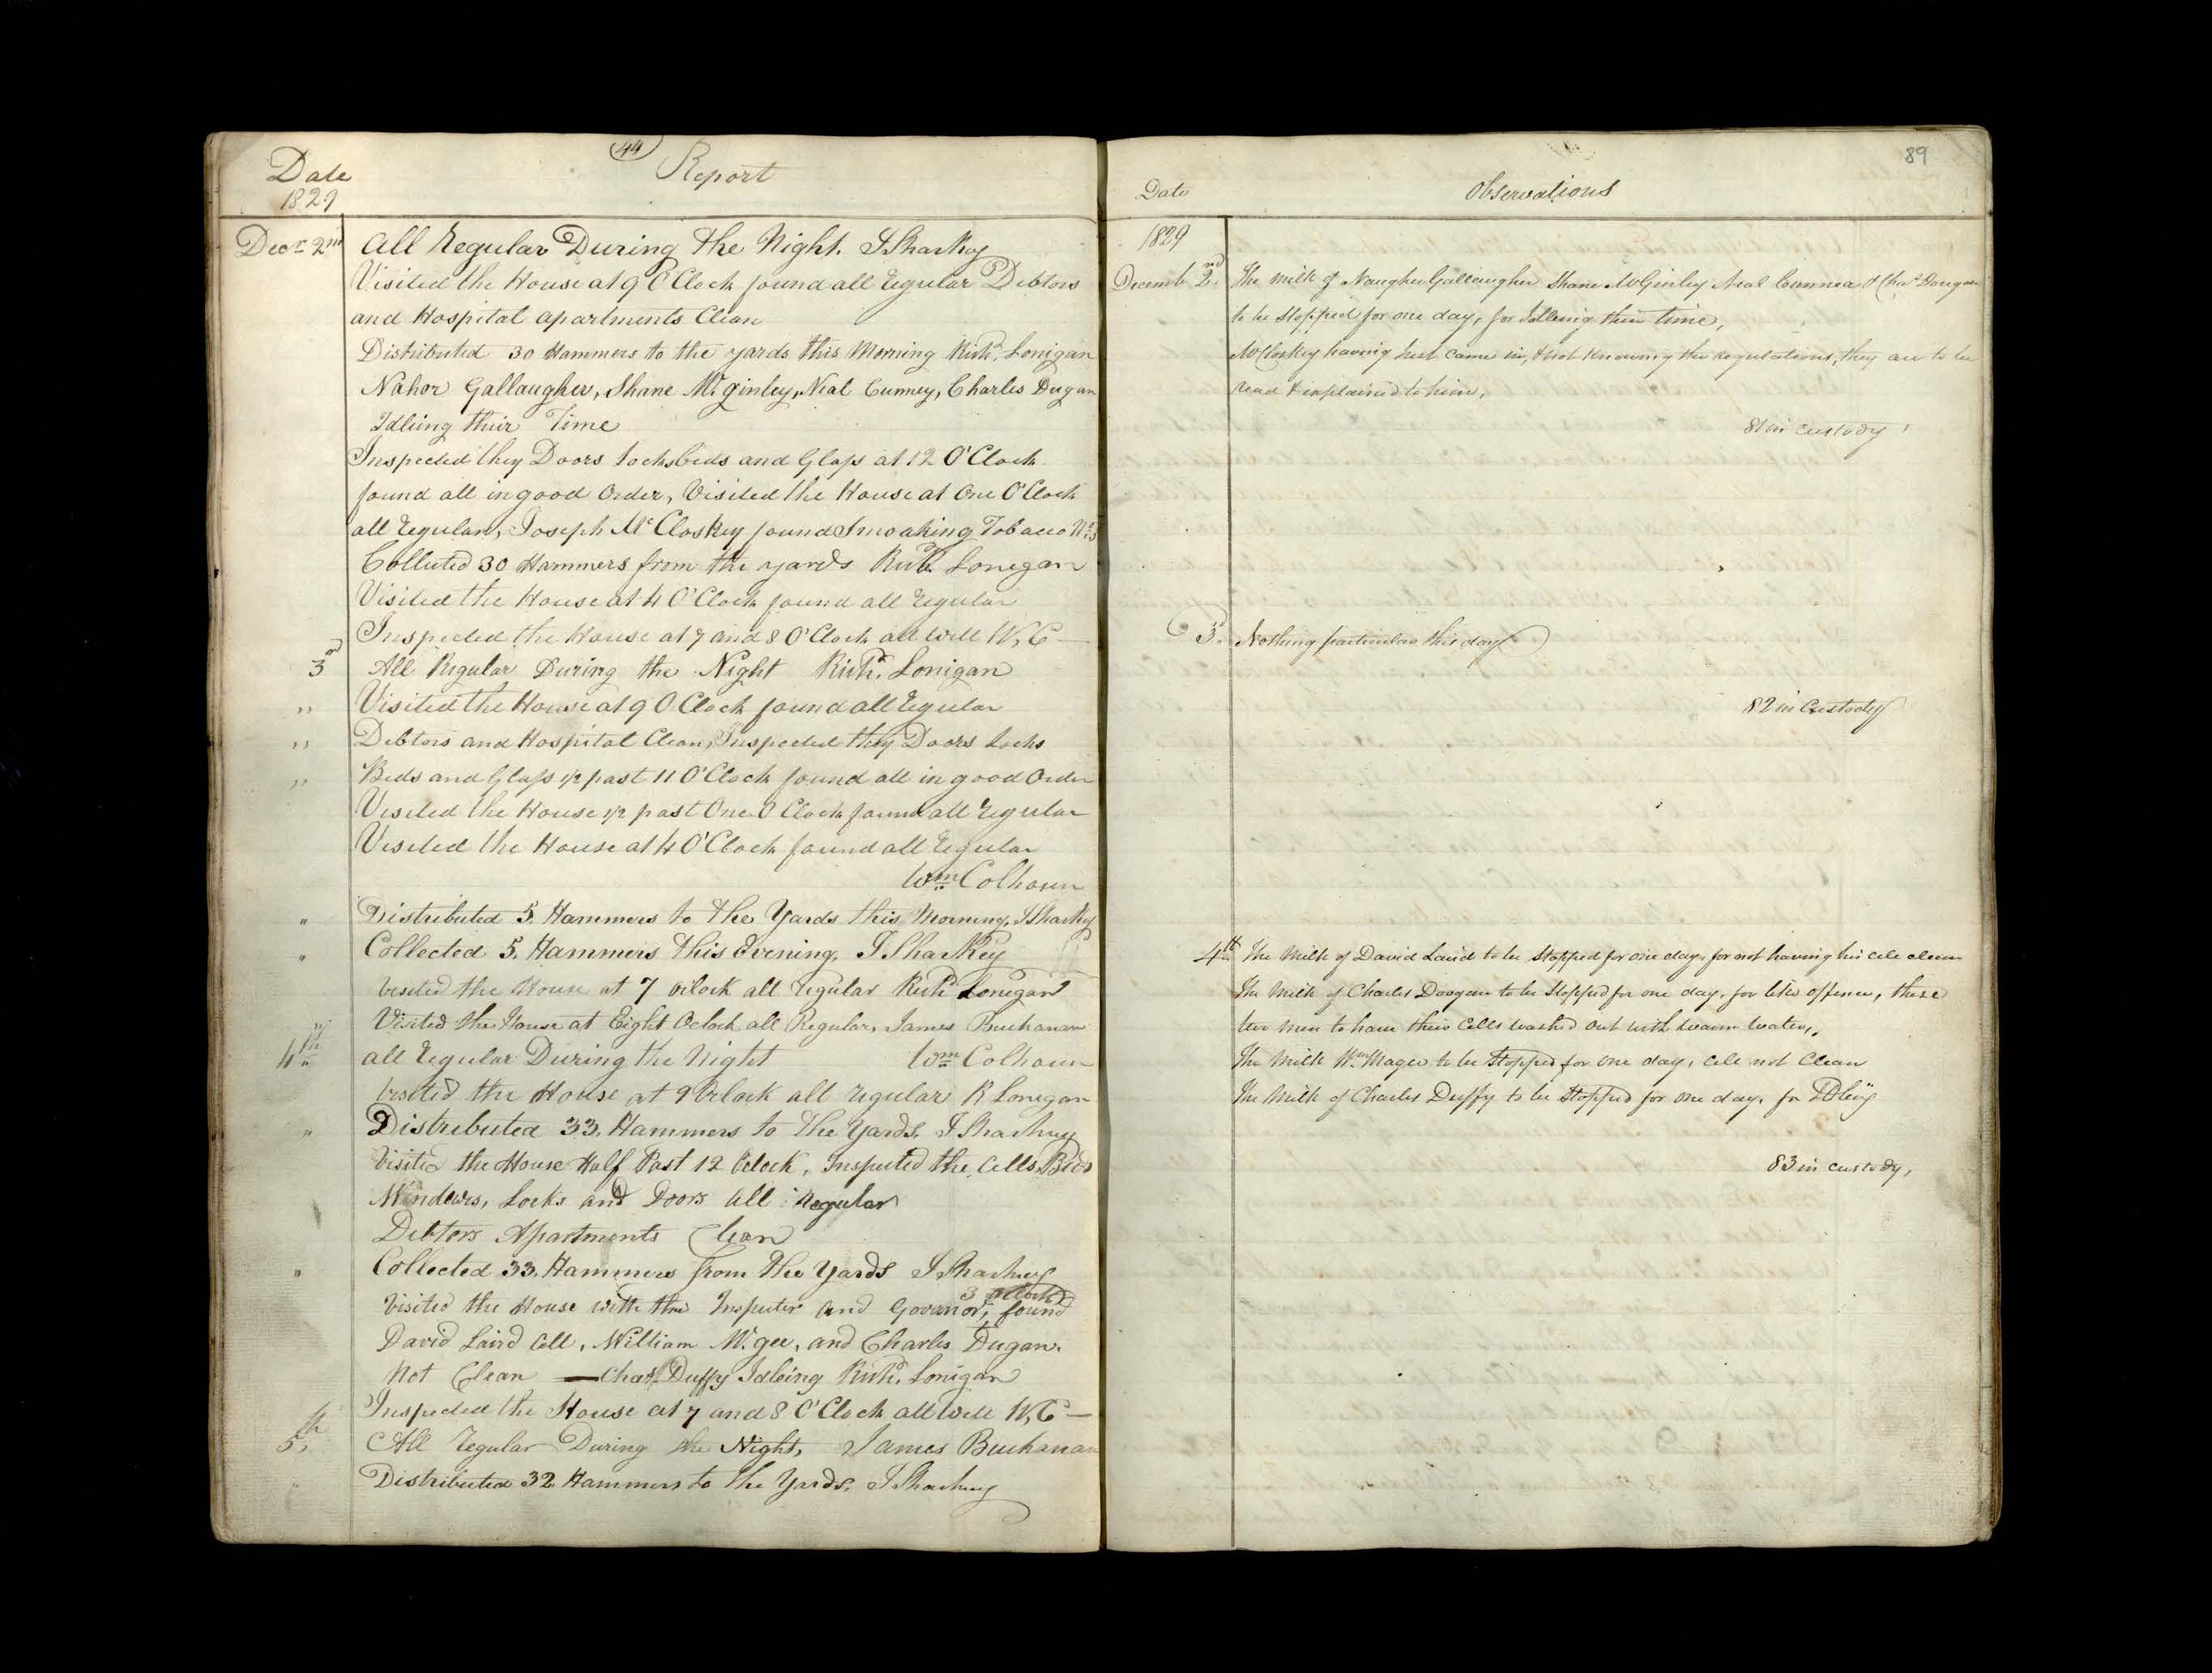 44
Date
Report
1829
Decr 2nd All Regular During the Night. J Sharkey
Visited the House at 9 O'Clock found all regular Debtors
and Hospital apartments Clean
Distributed 30 Hammers to the yards this Morning Richd. Lonigan
Nahor Gallaugher, Shane Mcginley, Neal Cunney, Charles Dugan
Idleing their Time
Inspected they Doors Locks beds and Glass at 12 O'Clock
found all in good Order, Visited the House at One O'Clock
all regular, Joseph McCloskey found Smoaking Tobacco
Collected 30 Hammers from the yards Richd. Lonigan
Visited the House at 4 O'Clock found all regular
Inspected the House at 7 and 8 O'Clock all well W, C
3rd All Regular During the Night Richd. Lonigan
" Visited the House at 9 O Clock found all regular
" Debtors and Hospital Clean, Inspected they Doors Locks
" Beds and Glass 1/2 past 11 O'Clock found all in good Order
Visited the House 1/2 past One O Clock found all regular
Visited the House at 4 O'Clock found all regular
Wm Colhoun
" Distributed 5. Hammers to the Yards this Morning. J Sharkey
" Collected 5. Hammers this Evening. J Sharkey
visited the House at 7 oclock all regular Richd Lonegan
" Visited the House at Eight Oclock all Regular, James Buchanan
4th all regular During the Night Wm Colhoun
visited the House at 9 Oclock all regular R Lonegan
" Distributed 33. Hammers to the Yards. J Sharkey
Visited the House Half Past 12 Oclock, Inspected the Cells Beds
Windows, Locks and Doors all Regular
Debtors Apartments Clean
" Collected 33. Hammers from the Yards J Sharkey
3 oClock
Visited the House with the Inspector and Govornor, found
David Laird Cell, William Mcgee, and Charles Dugan.
Not Clean — Chas. Duffy Idleing Richd. Lonigan
Inspected the House at 7 and 8 O'Clock all well W, C
5th All regular During the Night, James Buchanan
" Distributed 32 Hammers to the Yards. J Sharkey
89
Date
Observations
1829
Decemb 2nd. The milk of Naugher Gallaugher Shane McGinley Neal Cunnea & Chas Dougan
to be Stopped for one day, for Idleing their time,
McCloskey having Just came in, & not knowing the regulations, they are to be
read & explained to him,
81 in custody
3d. Nothing particular this day
82 in Custody
4th The Milk of David Laird to be Stopped for one day, for not having his cell clean
The Milk of Charles Doogan to be Stopped for one day, for like offence, these
two men to have their Cells washed out with warm water,
The Milk Wm Magee to be Stopped for one day, cell not Clean
The Milk of Charles Duffy to be Stopped for one day, for IDleing
83 in custody,